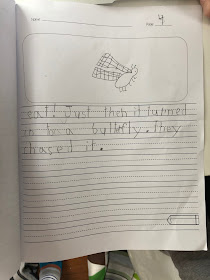 4
eat! Just then it turned
in to a buttefly. They
chased it.